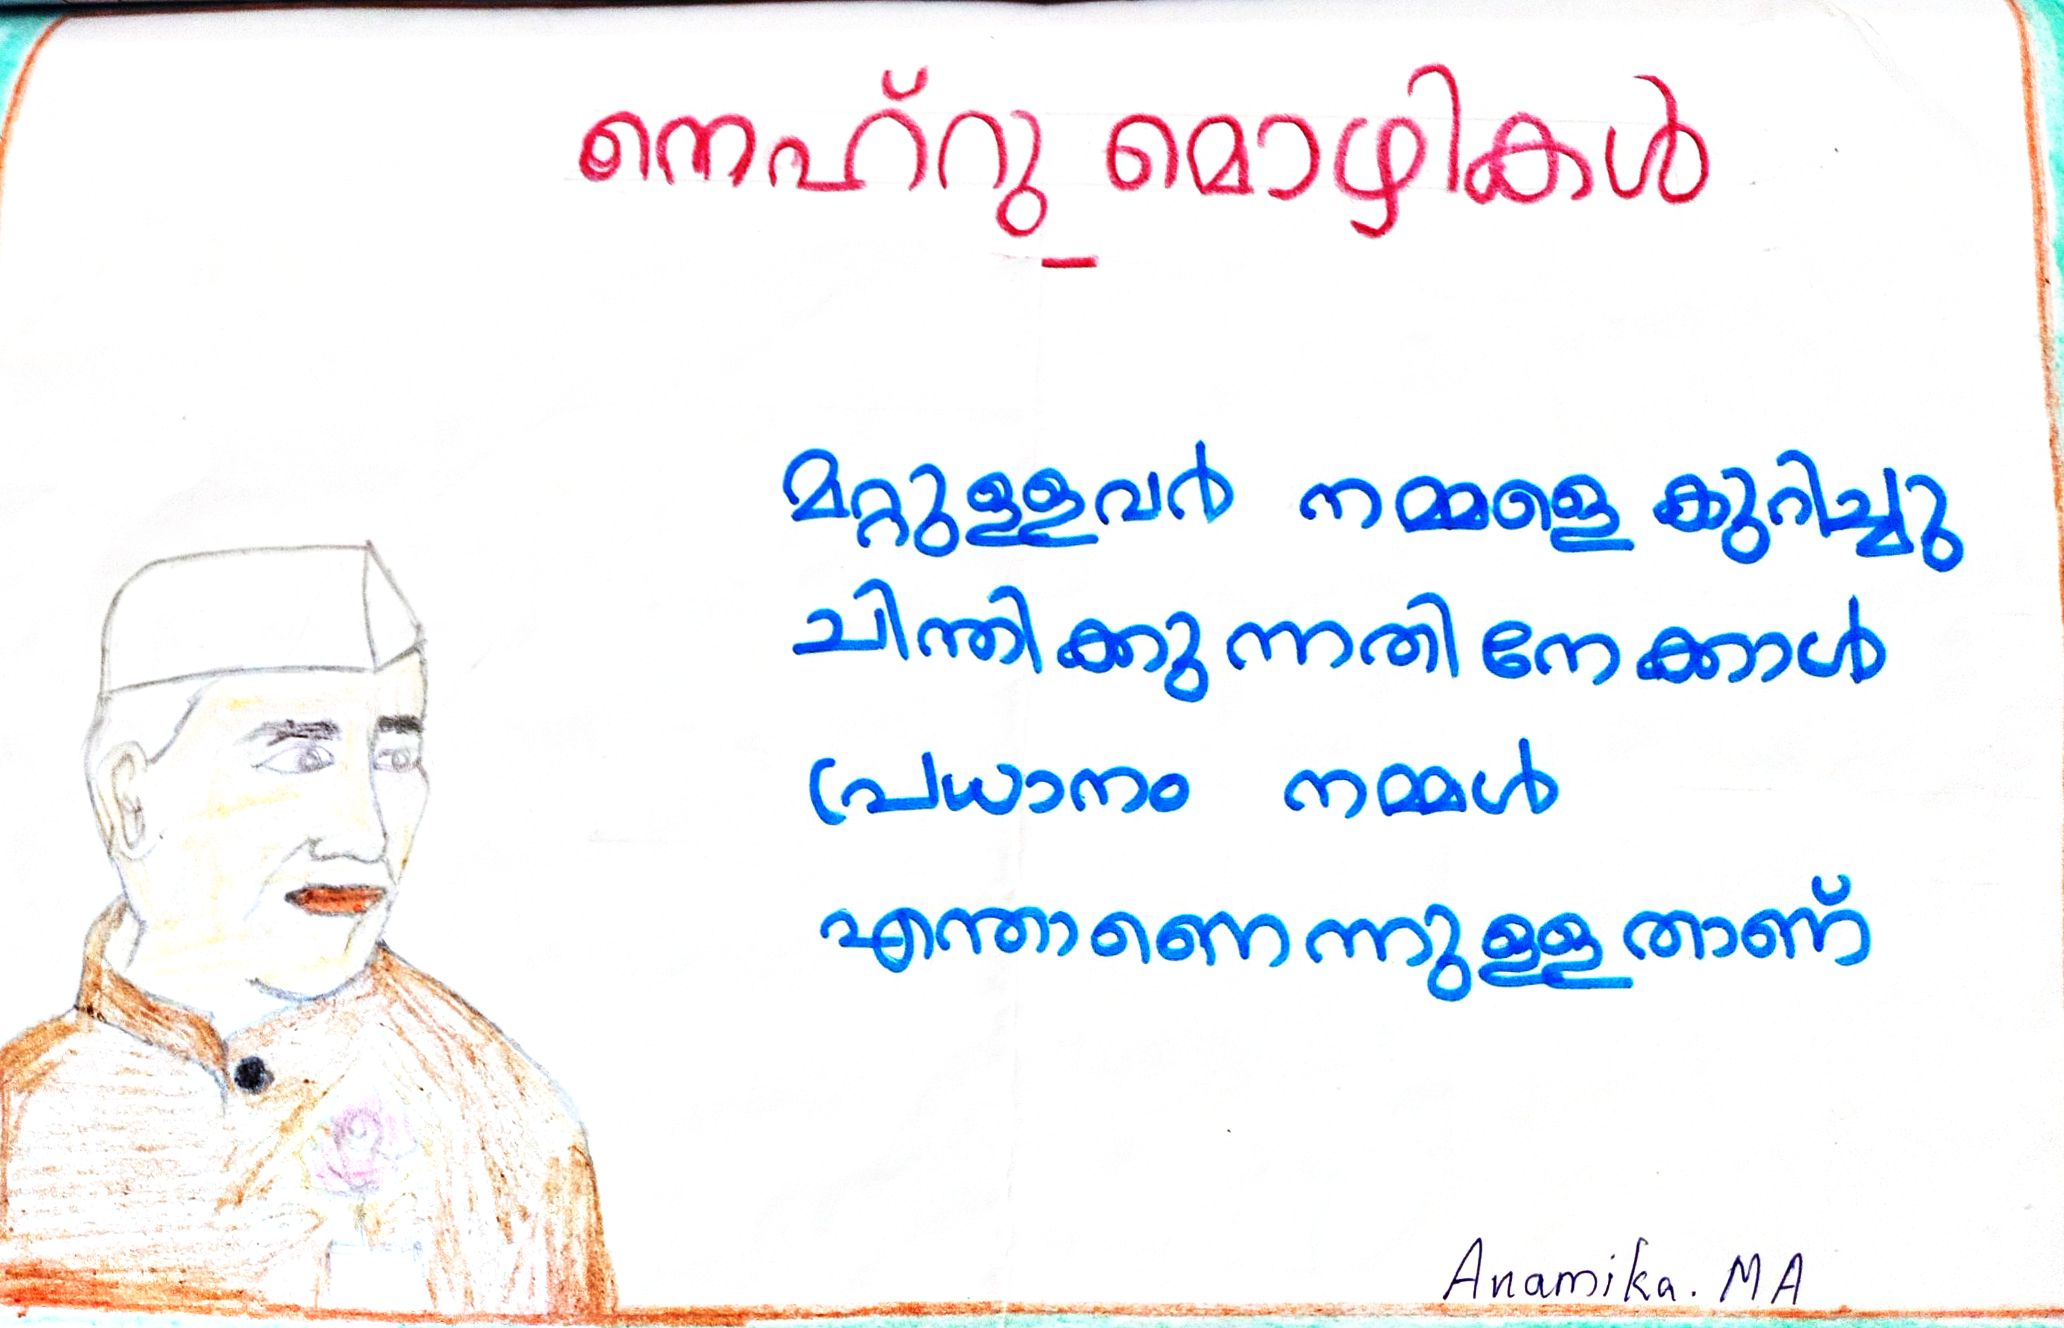 നെഹ്റു മൊഴികൾ
മറ്റുള്ളവർ നമ്മളെ കുറിച്ചു
ചിന്തിക്കുന്നതിനേക്കാൾ
പ്രധാനം നമ്മൾ
എന്താണെന്നുള്ളതാണ്
Anamika. MA